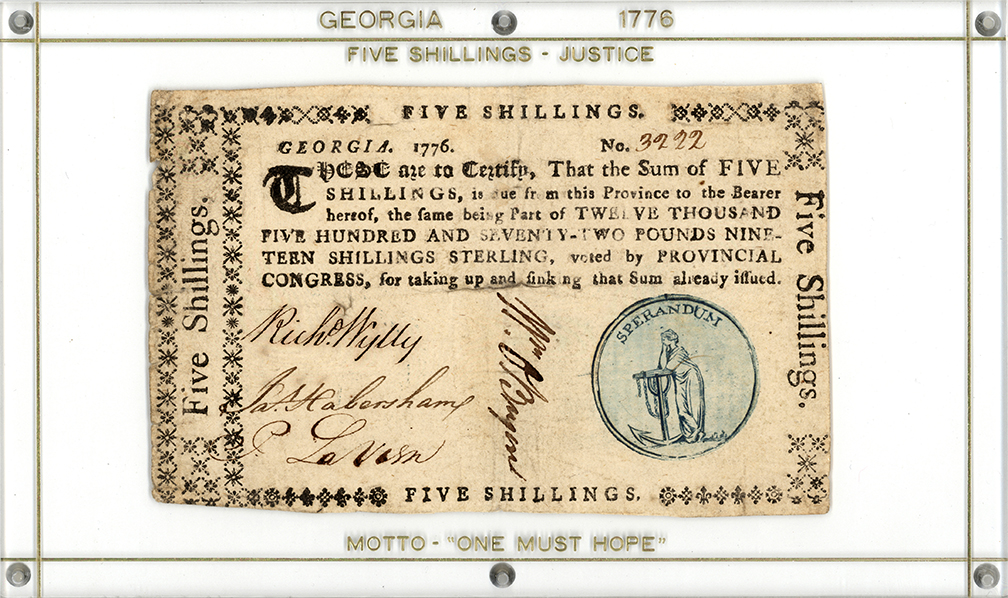 GEORGIA 1776
FIVE SHILLINGS - JUSTICE
FIVE SHILLINGS.
GEORGIA. 1776. No. 3222
THESE are to Certify, That the Sum of FIVE
SHILLINGS, is due from this Province to the Bearer
hereof, the same being Part of TWELVE THOUSAND
FIVE HUNDRED AND SEVENTY-TWO POUNDS NINE-
TEEN SHILLINGS STERLING, voted by PROVINCIAL
CONGRESS, for taking up and sinking that Sum already issued.
Five Shillings.
Five Shillings.
Richd. Wylly
Jas. Habersham
Wm
SPERANDUM
FIVE SHILLINGS.
MOTTO - "ONE MUST HOPE"